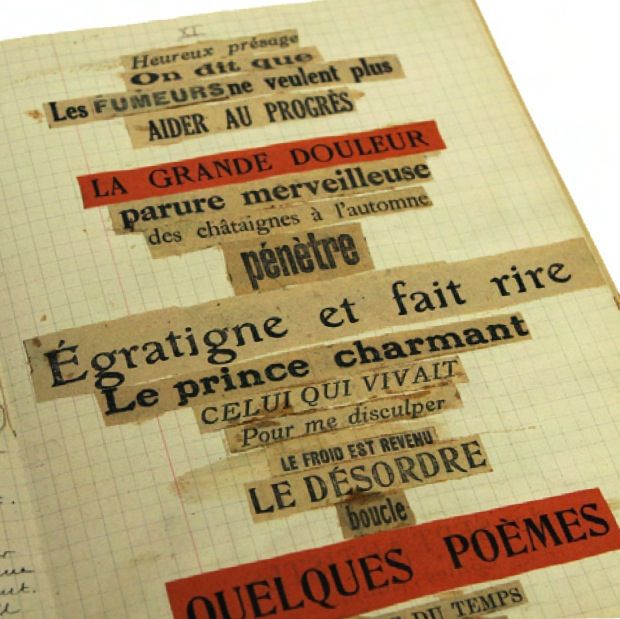 XI
Heureux présage
On dit que
Les FUMEURS ne veulent plus
AIDER AU PROGRÈS
LA GRANDE DOULEUR
parure merveilleuse
des châtaignes à l'automne
pénètre
Égratigne et fait rire
Le prince charmant
CELUI QUI VIVAIT
Pour me disculper
LE FROID EST REVENU
LE DÉSORDRE
boucle
QUELQUES POÈMES
DU TEMPS